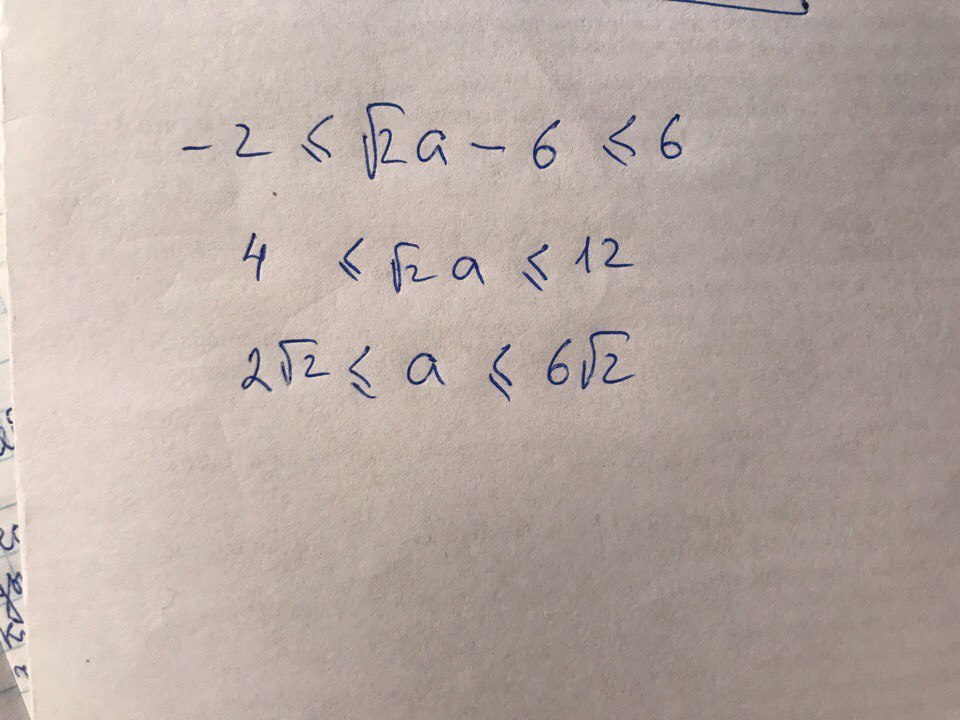 -2 ≤ √2a - 6 ≤ 6
4 ≤ √2 a ≤ 12
2√2 ≤ a ≤ 6√2